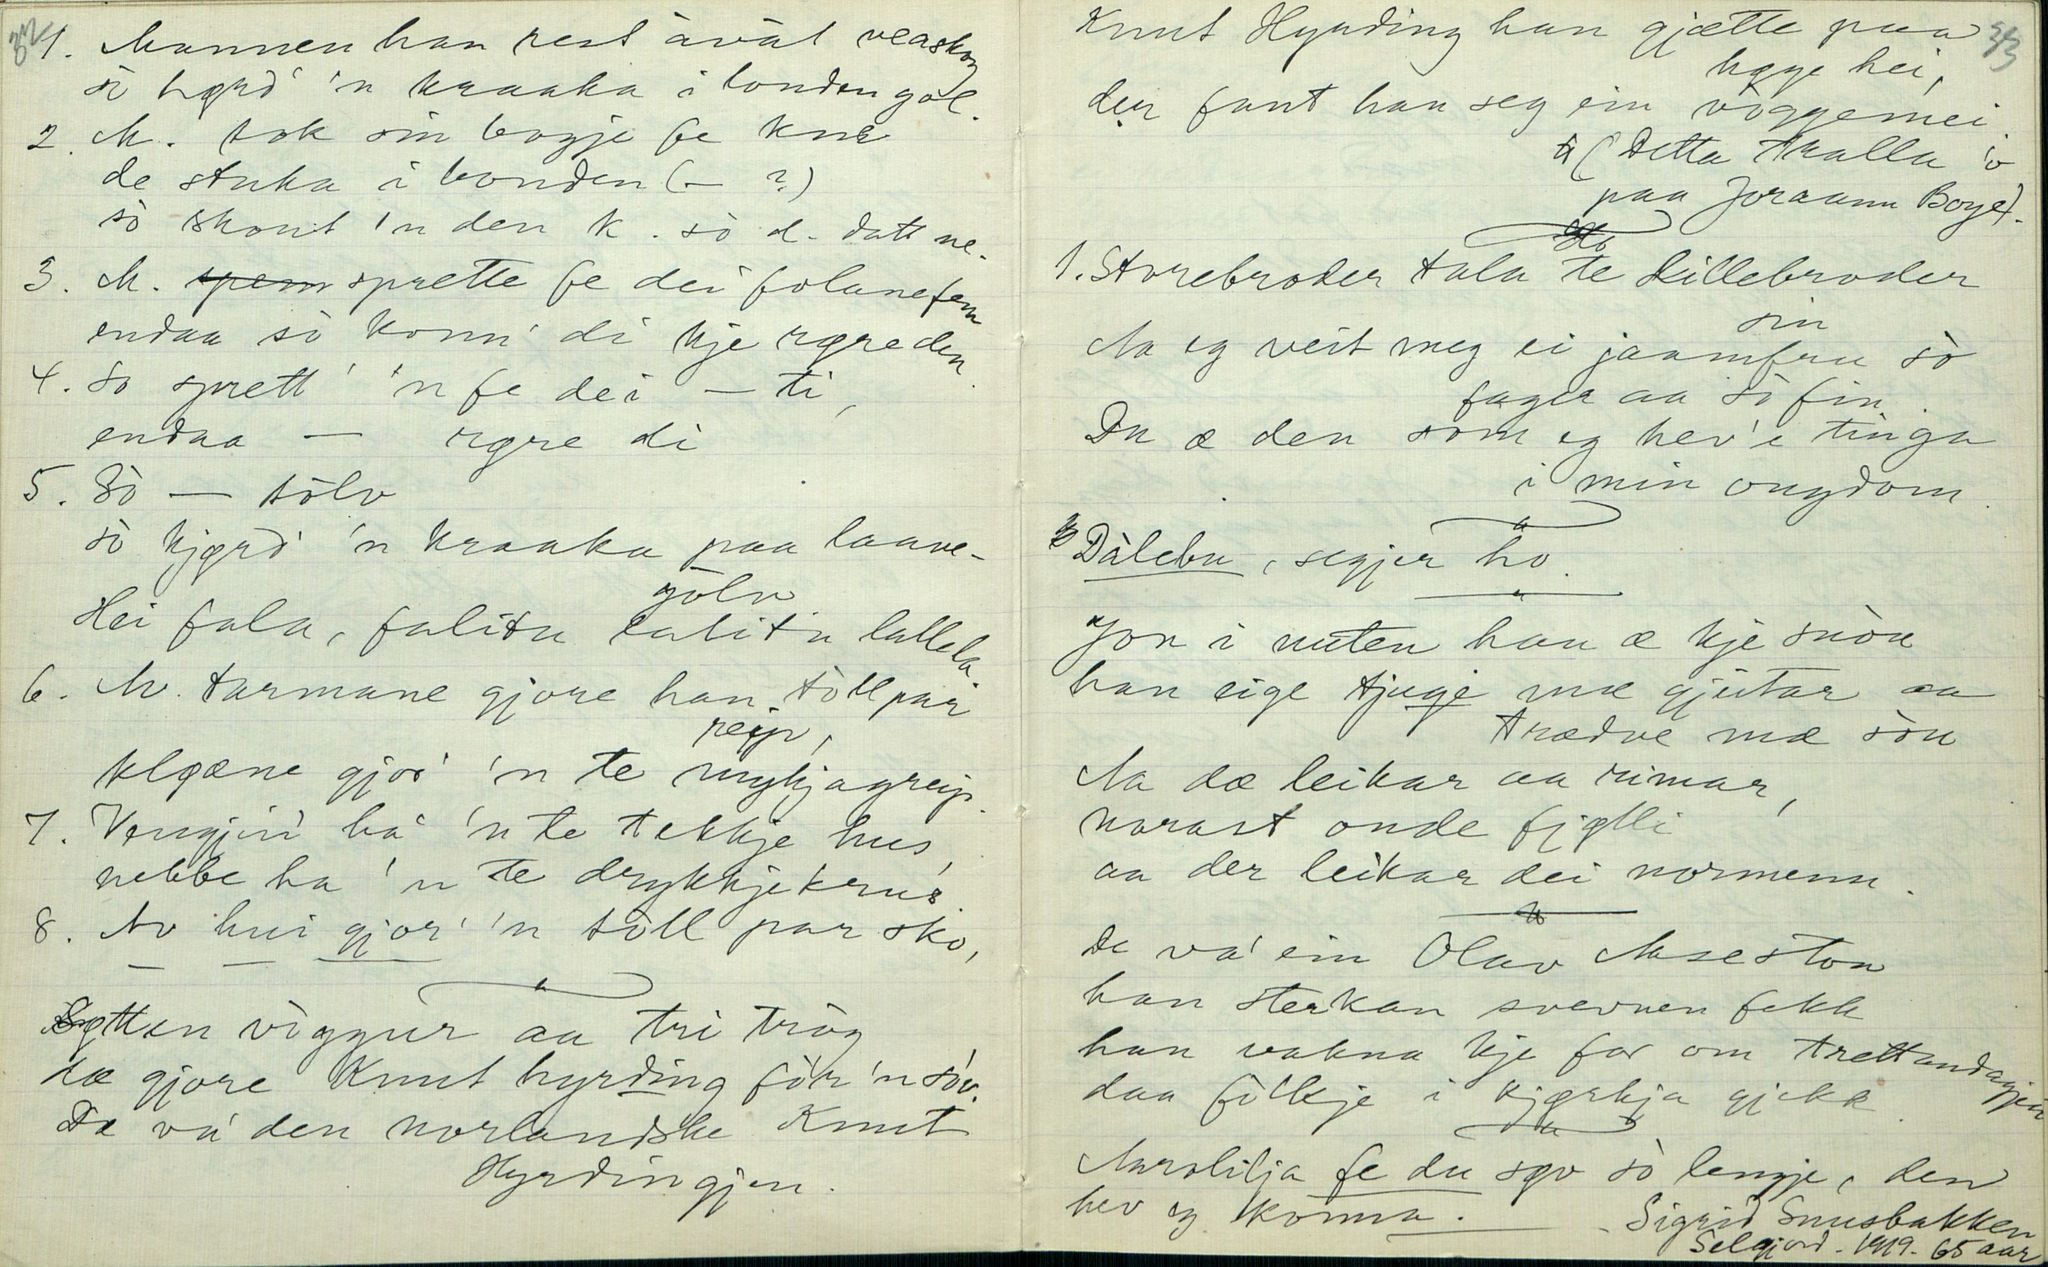 32
1. Mannen han reist åvåt veaskog
så høyrd' 'n kraaka i londen gol.
2. M. tok sin bogje fe kne
de stuka i bonden (– ?)
so skout 'n den k. so d. datt ne.
3. M. sprette fe dei folane fem
endaa so konn' di kje røre den.
4. So sprett' 'n fe dei – ti,
endaa – røre di
5. So – tolv
so kjørd' 'n kraaka paa laave-
golv
Hei fala, falitu lalitu lallela
6. M. tarmane gjore han toll par
reip,
kløæne gjor' 'n te mykjagreip.
7. Vengjin' ha' 'n te tekkje hus,
nebbe ha 'n te drykkjekrus
8. Av hui gjor' 'n toll par sko,
Sytten vòggur aa tri tròg
dæ gjore Knut hyrding fòr 'n sòv.
Dæ va' den norlandske Knut
Hyrdingjen.
33
Knut Hyrding han gjætte paa
høge hei,
der fant han seg ein vòggemei.
(Detta tralla 'o
paa Joraann Boye).
1. Storebroder tala te Lillebroder
sin
Aa eg veit meg ei jaamfru sò
fager aa sò fin
Du æ den som eg hev'e tinga
i min ongdom
Dålebu, segjer ho.
Jon i nuten han æ kje snòu
han eige tjuge mæ gjeitar aa
trædve mæ sòu
Aa dæ leikar aa rimar,
norast onde fjølli
aa der leikar dei normenn.
De va' ein Olav Aaseston
han sterkan svevnen fekk
han vakna kje før om trettandagjen
daa fòlkje i kjørkja gjekk
Aarolilja fe du søv so lengje, den
hev eg konna.
Sigrid Snusbakken
Seljord. 1919. 65 aar